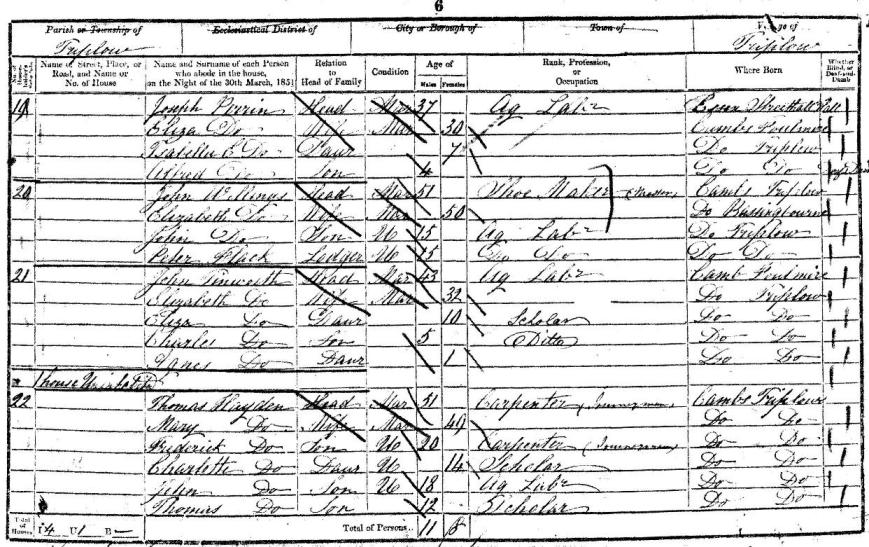 6
Parish or Township of Ecclesiastical District of City or Borough of Town of Village of
Triplow Triplow
Name of Street, Place, or Road, and Name or No. of House Name and Surname of each Person who abode in the house, on the Night of the 30th March, 1851 Relation to Head of Family Condition Age of Males Females Rank, Profession, or Occupation Where Born Whether Blind, or Deaf-and-Dumb
19 Joseph Perrin Head Mar 37 Ag Labr
Eliza Do Wife Mar 30 Cambs Foulmire
Isabella E Do Daur 7 Do Triplow
Alfred Do Son 4 Do Do
20 John Willings Head Mar 51 Shoe Maker Cambs Triplow
Elizabeth Do Wife Mar 50 Do Bassingbourne
John Do Son U 15 Ag Labr Do Triplow
Peter Black Lodger U 15 Do Do Do Do
21 John Head Mar 43 Ag Labr Camb Foulmire
Elizabeth Do Wife Mar 32 Do Triplow
Eliza Do Daur 10 Scholar Do Do
Charles Do Son 5 Ditto Do Do
Do Daur 1 Do Do
1 house Uninhabited
22 Thomas Hayden Head Mar 51 Carpenter Cambs Triplow
Mary Do Wife Mar 49 Do Do
Frederick Do Son U 20 Carpenter Do Do
Charlotte Do Daur U 14 Scholar Do Do
John Do Son U 18 Ag Labr Do Do
Thomas Do Son 12 Scholar Do Do
Total of Houses I 4 U 1 B — Total of Persons 11 8